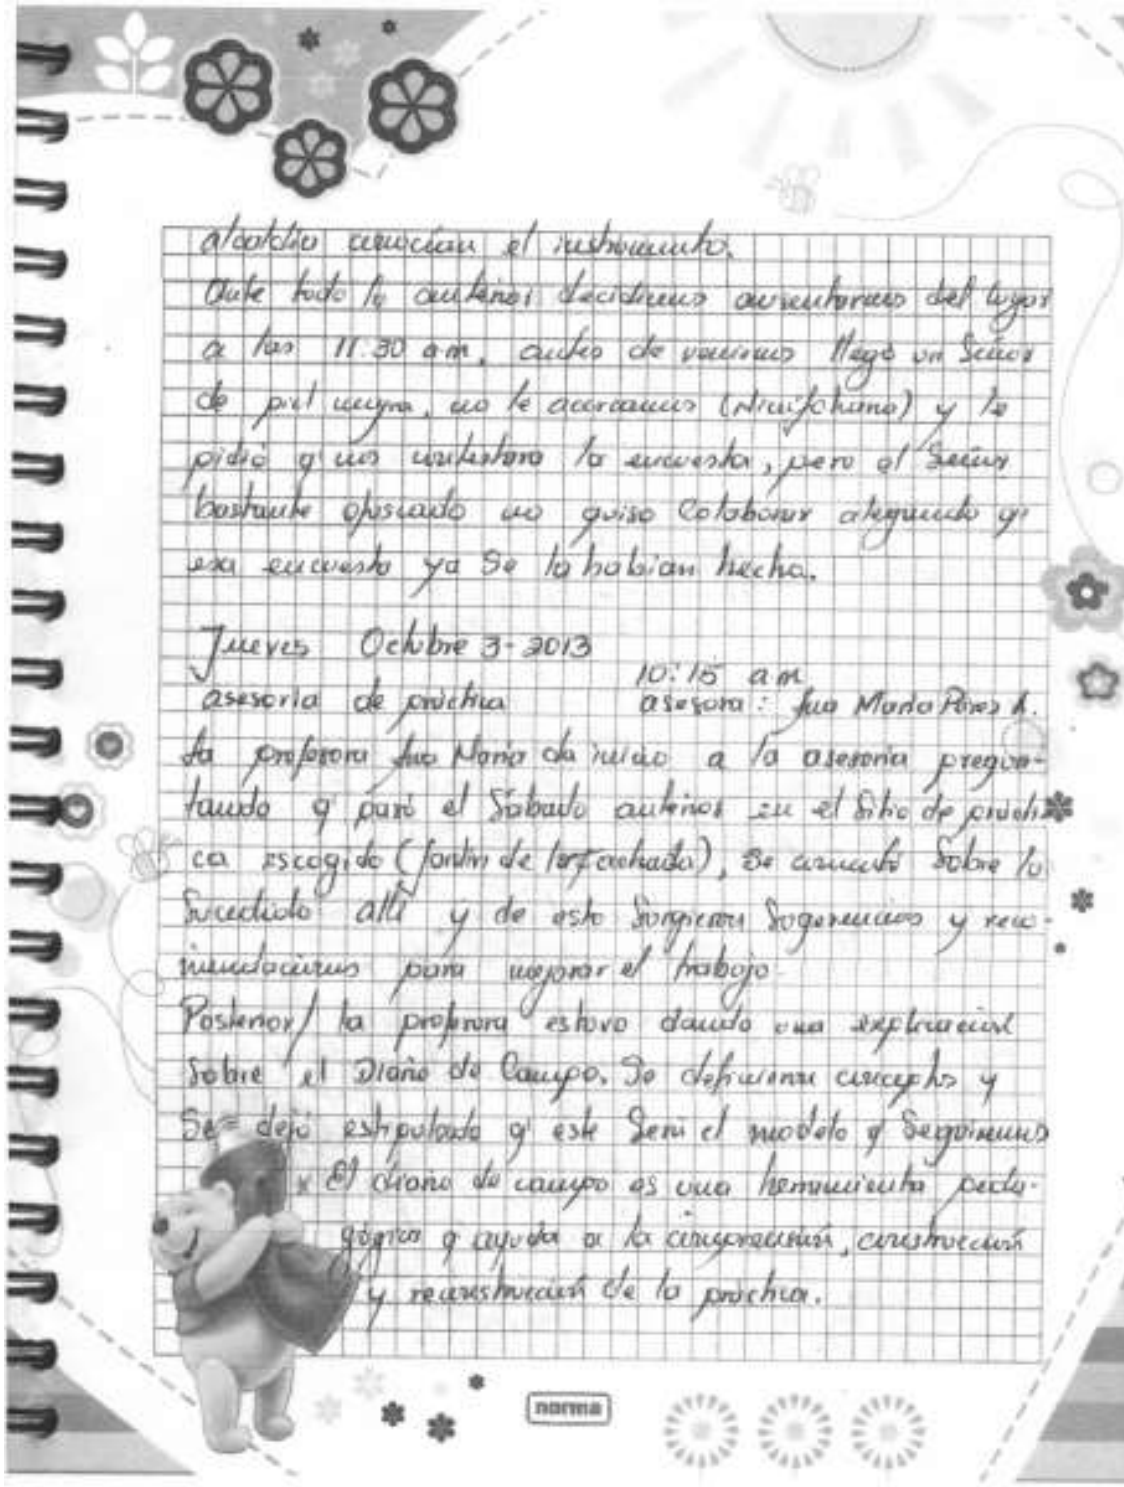 alcaldia conocian el instrumento.
Ante todo lo anterior decidimos ausentarnos del lugar
a las 11:30 am, antes de venirnos llegó un Señor
de piel negra, no le acercamos y le
pidió q' nos contestara la encuesta, pero el Señor
bastante ofuscado no quiso Colaborar alegando q'
esa encuesta ya Se la habian hecha.
Jueves Octubre 3-2013
10:15 am
asesoria de práctica asesora: Ana Maria
La profesora Ana Maria da inicio a la asesoria pregun-
tando q' pasó el Sabado anterior en el Sitio de prácti
ca escogido (Jardin de), Se comentó Sobre lo
Sucedido allí y de esto Surgieron Sugerencias y reco-
mendaciones para mejorar el trabajo.
Posterior/ la profesora estuvo dando una explicación
Sobre el Diario de Campo. Se definieron conceptos y
Se dejó estipulado q' este Será el modelo q' Seguiremos
x El diario de campo es una herramienta peda-
gógica q ayuda a la comprensión, construcción
y reconstrucción de la práctica.
norma